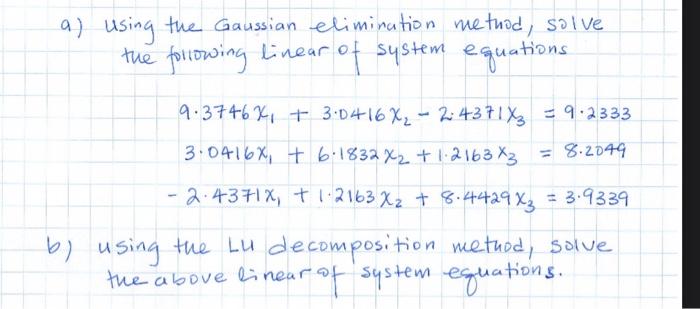 a) using the Gaussian elimination method, solve
the following linear of system equations
9.3746x₁ + 3.0416x₂ - 2.4371x₃ = 9.2333
3.0416x₁ + 6.1832x₂ + 1.2163x₃ = 8.2049
- 2.4371x₁ + 1.2163x₂ + 8.4429x₃ = 3.9339
b) using the LU decomposition method, solve
the above linear of system equations.